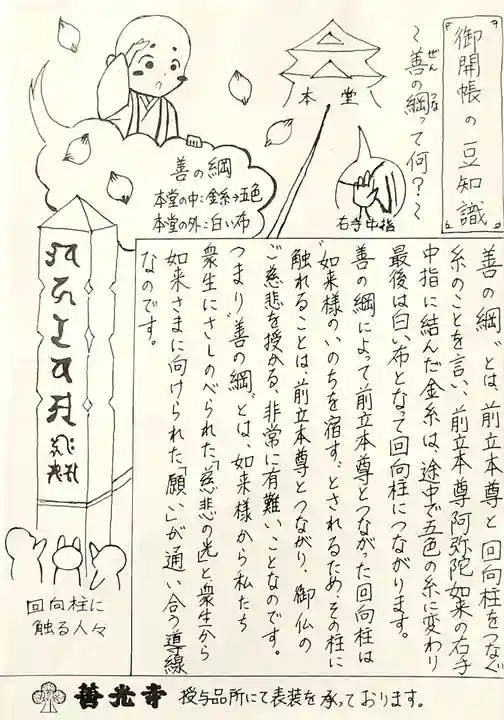 御開帳の豆知識
～善の綱って何？～
ぜん
つな
本堂
右手中指
善の綱
本堂の中：金糸→五色
本堂の外：白い布
〝善の綱〟とは、前立本尊と回向柱をつなぐ
糸のことを言い、前立本尊阿弥陀如来の右手
中指に結んだ金糸は、途中で五色の糸に変わり
最後は白い布となって回向柱につながります。
善の綱によって前立本尊とつながった回向柱は
〝如来様のいのちを宿す〟とされるため、その柱に
触れることは、前立本尊とつながり、御仏の
ご慈悲を授かる、非常に有難いことなのです。
つまり〝善の綱〟とは、如来様から私たち
衆生にさしのべられた「慈悲の光」と、衆生から
如来さまに向けられた「願い」が通い合う導線
なのです。
回向柱に
触る人々
善光寺 授与品所にて表装を承っております。